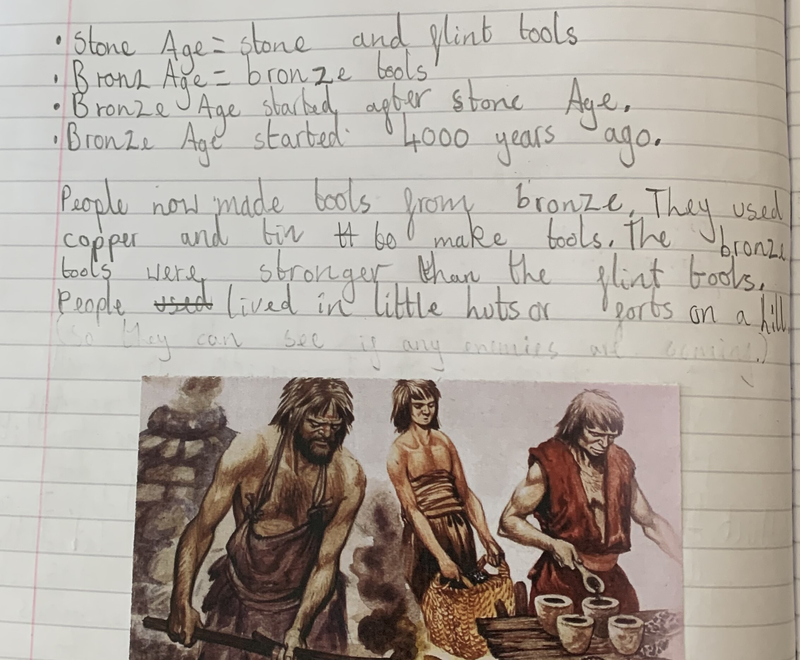 • Stone Age = stone and flint tools
• Bronz Age = bronze tools
• Bronze Age started after stone Age.
• Bronze Age started 4000 years ago.
People now made tools from bronze. They used
copper and tin tt to make tools. The bronze
tools were stronger than the flint tools.
People used lived in little huts or forts on a hill
(so they can see if any enemies are coming.)